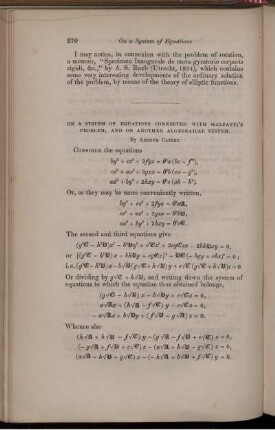 270 On a System of Equations
I may notice, in connexion with the problem of rotation,
a memoir, "Specimen Inaugurale de motu gyratorio corporis
rigidi, &c.," by A. S. Rueb (Utrecht, 1834), which contains
some very interesting developments of the ordinary solution
of the problem, by means of the theory of elliptic functions.
ON A SYSTEM OF EQUATIONS CONNECTED WITH MALFATTI'S
PROBLEM, AND ON ANOTHER ALGEBRAICAL SYSTEM.
By ARTHUR CAYLEY.
CONSIDER the equations
by² + cz² + 2fyz = θ²a (bc − f²),
cz² + ax² + 2gzx = θ²b (ca − g²),
ax² + by² + 2hxy = θ²c (ab − h²).
Or, as they may be more conveniently written,
by² + cz² + 2fyz = θ²a𝔄,
cz² + ax² + 2gzx = θ²b𝔅,
ax² + by² + 2hxy = θ²c𝔆.
The second and third equations give
Or dividing by g√𝔆 + h√𝔅, and writing down the system of
equations to which the equation thus obtained belongs,
(g√𝔆 − h√𝔅) x − b√𝔅y + c√𝔆z = 0,
a√𝔄x + (h√𝔄 − f√𝔆) y − c√𝔆z = 0,
− a√𝔄x + b√𝔅y + (f√𝔅 − g√𝔄) z = 0.
Whence also